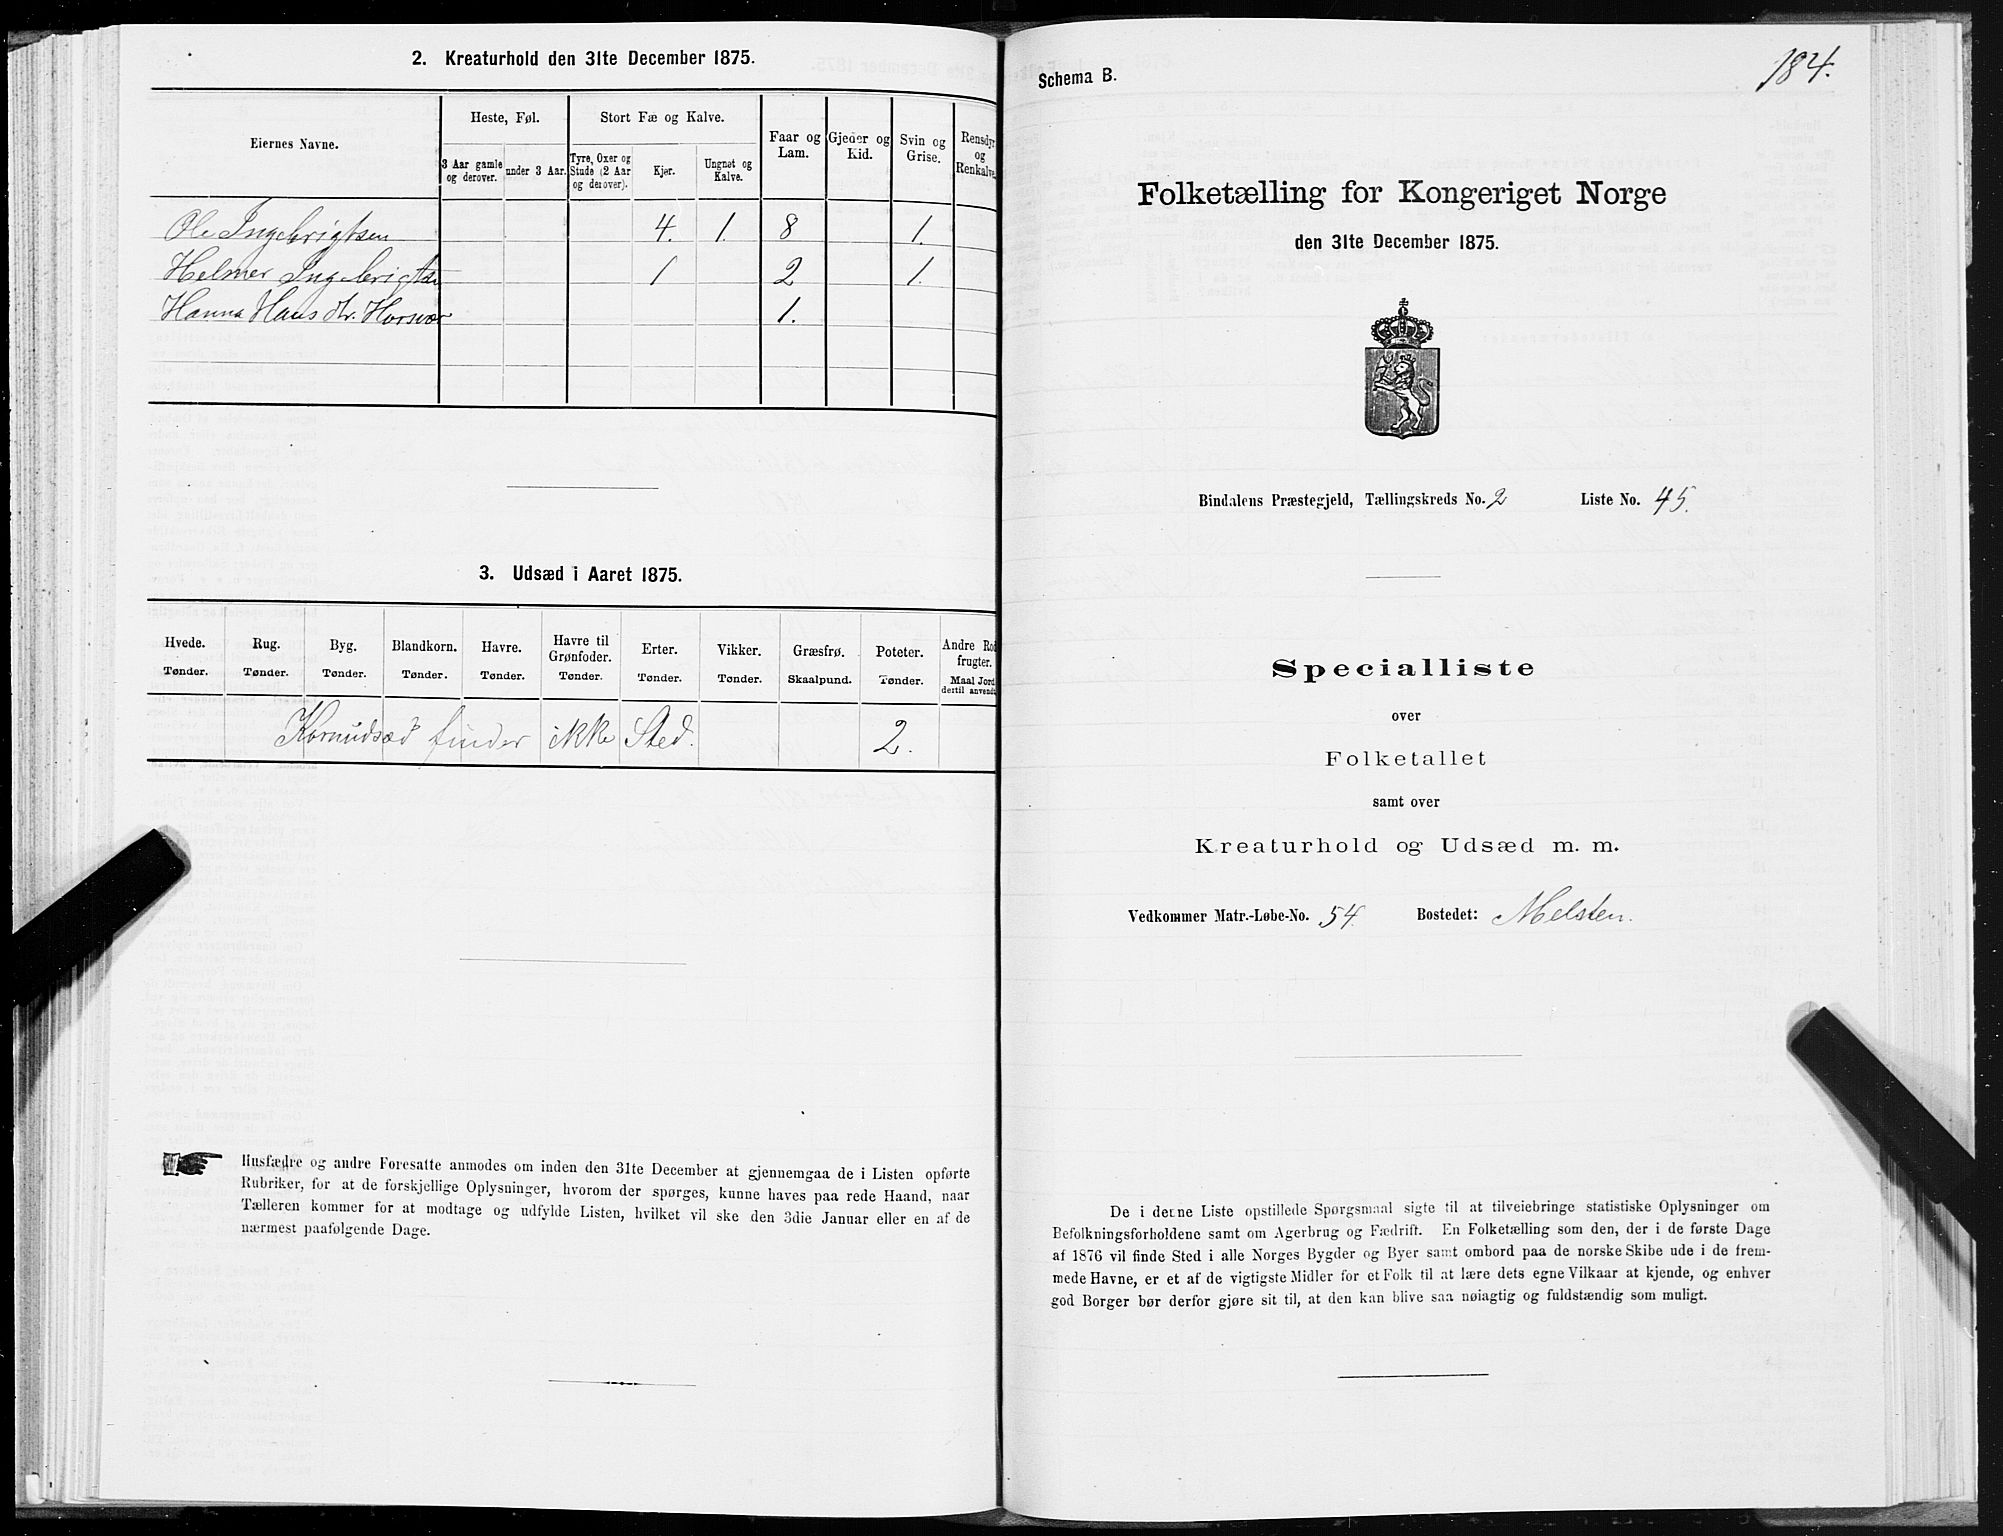 2. Kreaturhold den 31te December 1875.
Eiernes Navne.
Heste, Føl.
Stort Fæ og Kalve.
Faar og Lam.
Gjeder og Kid.
Svin og Grise.
Rensdyr og Renkalve.
3 Aar gamle og derover.
under 3 Aar.
Tyre, Oxer og Stude (2 Aar og derover).
Kjør.
Ungnøt og Kalve.
Ole Ingebrigtsen 4. 1. 8 1.
Helmer Ingebrigtsen 1 2 1.
Hanna Hans Dr. Horsvær 1.
3. Udsæd i Aaret 1875.
Hvede. Rug. Byg. Blandkorn. Havre. Havre til Grønfoder. Erter. Vikker. Græsfrø. Poteter. Andre Rodfrugter.
Tønder. Tønder. Tønder. Tønder. Tønder. Tønder. Tønder. Tønder. Skaalpund. Tønder. Maal Jord dertil anvendt.
Kornudsæd finder ikke Sted. 2.
Husfædre og andre Foresatte anmodes om inden den 31te December at gjennemgaa de i Listen opførte
Rubriker, for at de forskjellige Oplysninger, hvorom der spørges, kunne haves paa rede Haand, naar
Tælleren kommer for at modtage og udfylde Listen, hvilket vil ske den 3die Januar eller en af de
nærmest paafølgende Dage.
184.
Schema B.
Folketælling for Kongeriget Norge
den 31te December 1875.
Bindalens Præstegjeld, Tællingskreds No. 2 Liste No. 45.
Specialliste
over
Folketallet
samt over
Kreaturhold og Udsæd m. m.
Vedkommer Matr.-Løbe-No. 54. Bostedet: Melsten.
De i denne Liste opstillede Spørgsmaal sigte til at tilveiebringe statistiske Oplysninger om
Befolkningsforholdene samt om Agerbrug og Fædrift. En Folketælling som den, der i de første Dage
af 1876 vil finde Sted i alle Norges Bygder og Byer samt ombord paa de norske Skibe ude i de frem-
mede Havne, er et af de vigtigste Midler for et Folk til at lære dets egne Vilkaar at kjende, og enhver
god Borger bør derfor gjøre sit til, at den kan blive saa nøiagtig og fuldstændig som muligt.